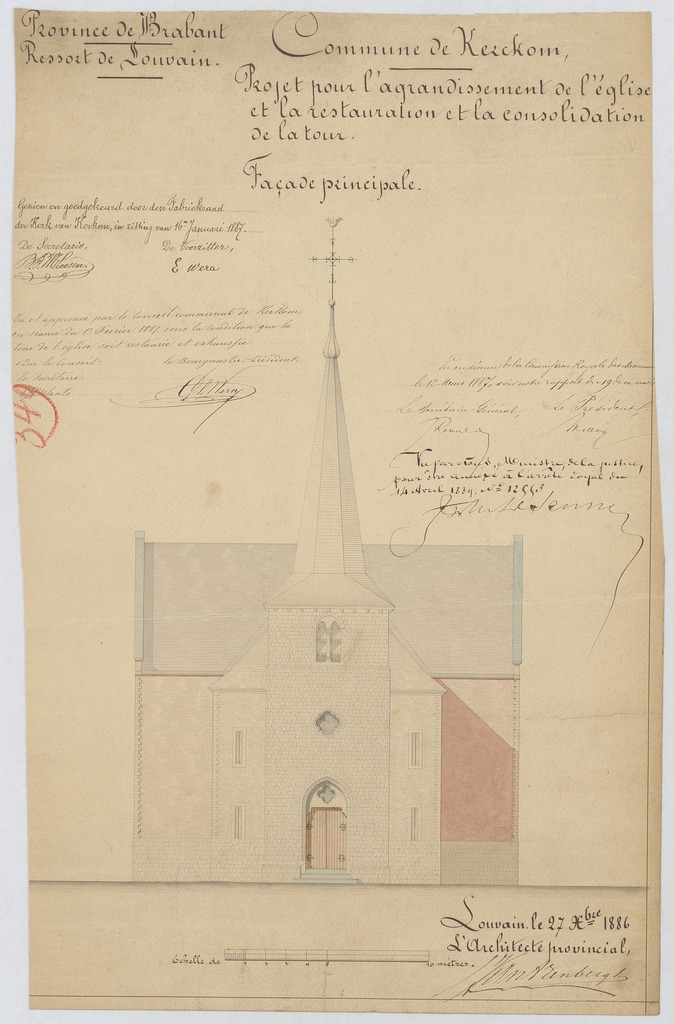 Province de Brabant
Ressort de Louvain.
Commune de Kerckom,
Projet pour l'agrandissement de l'église
et la restauration et la consolidation
de la tour.
Façade principale.
Gezien en goedgekeurd door den Fabriekraad
der Kerk van Kerkom, in zitting van 16en Januari 1887.
De Secretaris, De Voorzitter,
E. Wera
Vu et approuvé par le Conseil communal de Kerkom,
en séance du 1r Février 1887, sous la condition que la
tour de l'église soit restaurée et exhaussée
Par le Conseil:
le Secrétaire le Bourgmestre Président,
349
Vu en séance de la Commission Royale des Monuments
le 12 Mars 1887, voir notre rapport du 19 de ce mois
Le Secrétaire Général, Le Président,
Vu par nous, Ministre de la justice,
pour être annexé à l'arrêté royal du
14 Avril 1889, No
Louvain, le 27 Xbre 1886
L'Architecte provincial,
Echelle de 1 2 3 4 5 10 mètres.